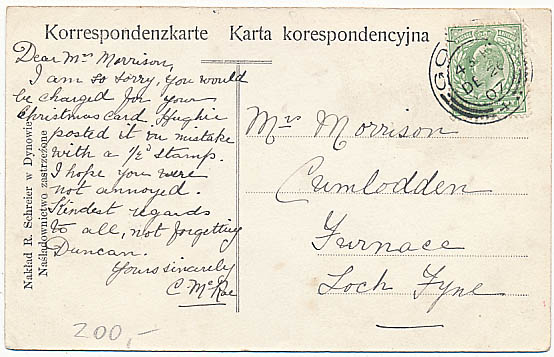 Korrespondenzkarte Karta korespondencyjna
Dear Mrs Morrison,
I am so sorry, you would
be charged for your
Christmas card. Hughie
posted it in mistake
with a 1/2d stamp.
I hope you were
not annoyed.
Kindest regards
to all, not forgetting
Duncan.
Yours sincerely
C. McRae
Mrs Morrison
Cumlodden
Furnace
Loch Fyne
Nakład R. Schreier w Dynowie
Naśladownictwo zastrzeżone
DE 26
07
200,-